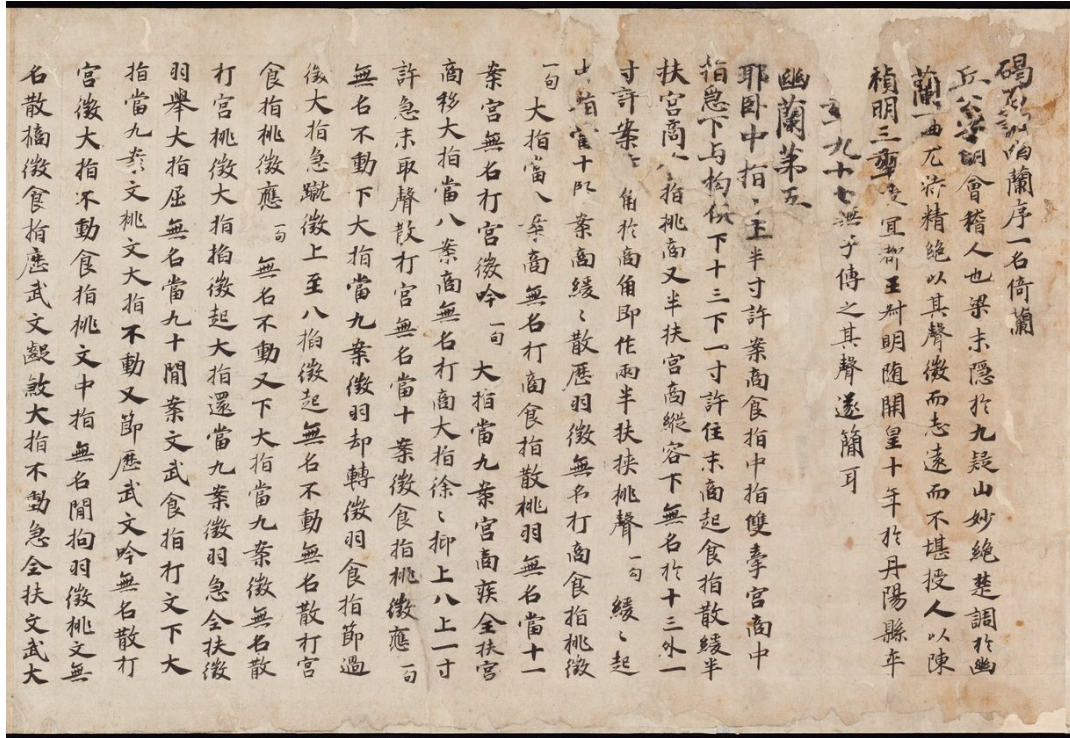 碣石調幽蘭序一名倚蘭
丘公字明會稽人也梁末隱於九疑山妙絕楚調於幽
蘭一曲尤特精絕以其聲微而志遠而不堪授人以陳
禎明三年授宜都王叔明随開皇十年於丹陽縣卒
九十七無子傳之其聲遂簡耳
幽蘭第五
耶卧中指〻半寸許案商食指中指雙牽宮商中
指急下与拘俱下十三下一寸許住末商起食指散緩半
扶宮商食指挑商又半扶宮商縱容下無名於十三外一
寸許案商角於商角即作兩半扶挾挑聲一句 緩〻起
無名於十三外一寸許案商角 指當十案商緩〻散歷羽徵無名打商食指挑徵
一句 大指當八案商無名打商食指散挑羽無名當十一
案宮無名打宮徵吟一句 大指當九案宮商疾全扶宮
商移大指當八案商無名打商大指徐〻抑上八上一寸
許急末取聲散打宮無名當十案徵食指挑徵應一句
無名不動下大指當九案徵羽却轉徵羽食指節過
徵大指急蹴徵上至八掐徵起無名不動無名散打宮
食指挑徵應一句 無名不動又下大指當九案徵無名散
打宮挑徵大指掐徵起大指還當九案徵羽急全扶徵
羽舉大指屈無名當九十間案文武食指打文下大
指當九案文挑文大指不動又節歷武文吟無名散打
宮徵大指不動食指挑文中指無名間拘羽徵挑文無
名散擿徵食指歷武文齪煞大指不動急全扶文武大